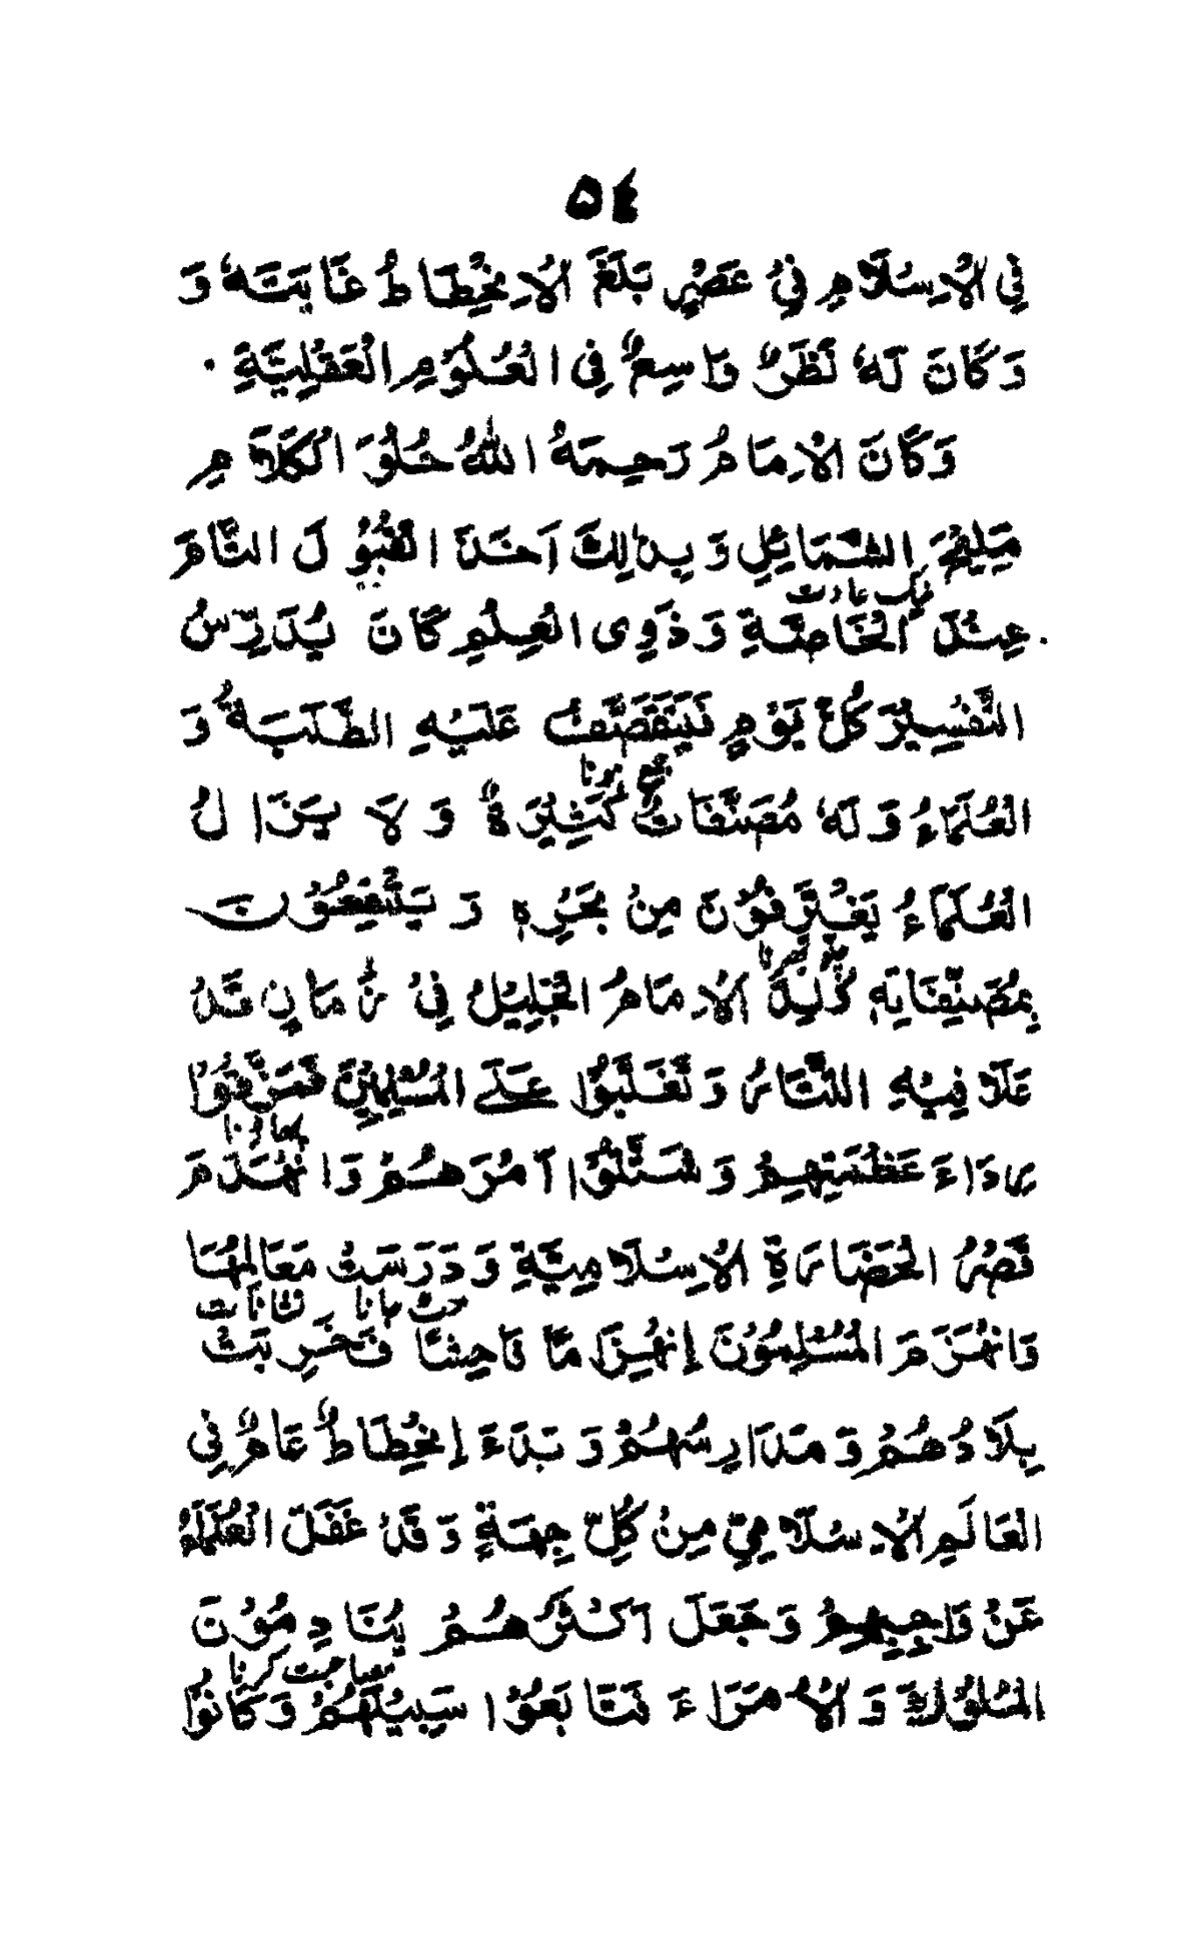 ٥٤
فِي الْاِسْلَامِ فِيْ عَصْرٍ بَلَغَ الْاِنْحِطَاطُ غَايَتَهٗ وَ
وَكَانَ لَهٗ نَظَرٌ وَاسِعٌ فِي الْعُلُوْمِ الْعَقْلِيَّةِ ۰
وَكَانَ الْاِمَامُ رَحِمَهُ اللّٰهُ حُلْوَ الْكَلَامِ
مَلِيْحَ الشَّمَائِلِ وَبِذٰلِكَ اَخَذَ الْقُبُوْلَ التَّامَّ
نیک عادت
عِنْدَ الْخَاصَّةِ وَذَوِى الْعِلْمِ كَانَ يُدَرِّسُ
التَّفْسِيْرَ كُلَّ يَوْمٍ فَيَتَقَصَّفُ عَلَيْهِ الطَّلَبَةُ وَ
جمع ہونا
الْعُلَمَاءُ وَلَهٗ مُصَنَّفَاتٌ كَثِيْرَةٌ وَ لَا يَزَالُ
الْعُلَمَاءُ يَغْتَرِفُوْنَ مِنْ بَحْرِهٖ وَ يَنْتَفِعُوْنَ
چلو بھرنا
بِمُصَنَّفَاتِهٖ وُلِدَ الْاِمَامُ الْجَلِيْلُ فِيْ زَمَانٍ قَدْ
عَلَا فِيْهِ التَّتَارُ وَتَغَلَّبُوْا عَلَى الْمُسْلِمِيْنَ فَمَزَّقُوْا
پھاڑنا
رِدَاءَ عَظْمَتِهِمْ وَشَتَّتُوْا اَمْرَهُمْ وَانْهَدَمَ
قَصْرُ الْحَضَارَةِ الْاِسْلَامِيَّةِ وَدَرَسَتْ مَعَالِمُهَا
مٹ جانا نشانات
وَانْهَزَمَ الْمُسْلِمُوْنَ اِنْهِزَامًا فَاحِشًا فَخَرِبَتْ
بِلَادُهُمْ وَمَدَارِسُهُمْ وَ بَدَءَ اِنْحِطَاطٌ عَامٌّ فِي
الْعَالَمِ الْاِسْلَامِيِّ مِنْ كُلِّ جِهَةٍ وَقَدْ غَفَلَ الْعُلَمَاءُ
عَنْ وَاجِبِهِمْ وَجَعَلَ اَكْثَرُهُمْ يُنَادِمُوْنَ
مصاحبت کرنا
الْمُلُوْكَ وَالْاُمَرَاءَ فَتَابَعُوْا سَبِيْلَهُمْ وَكَانُوْا